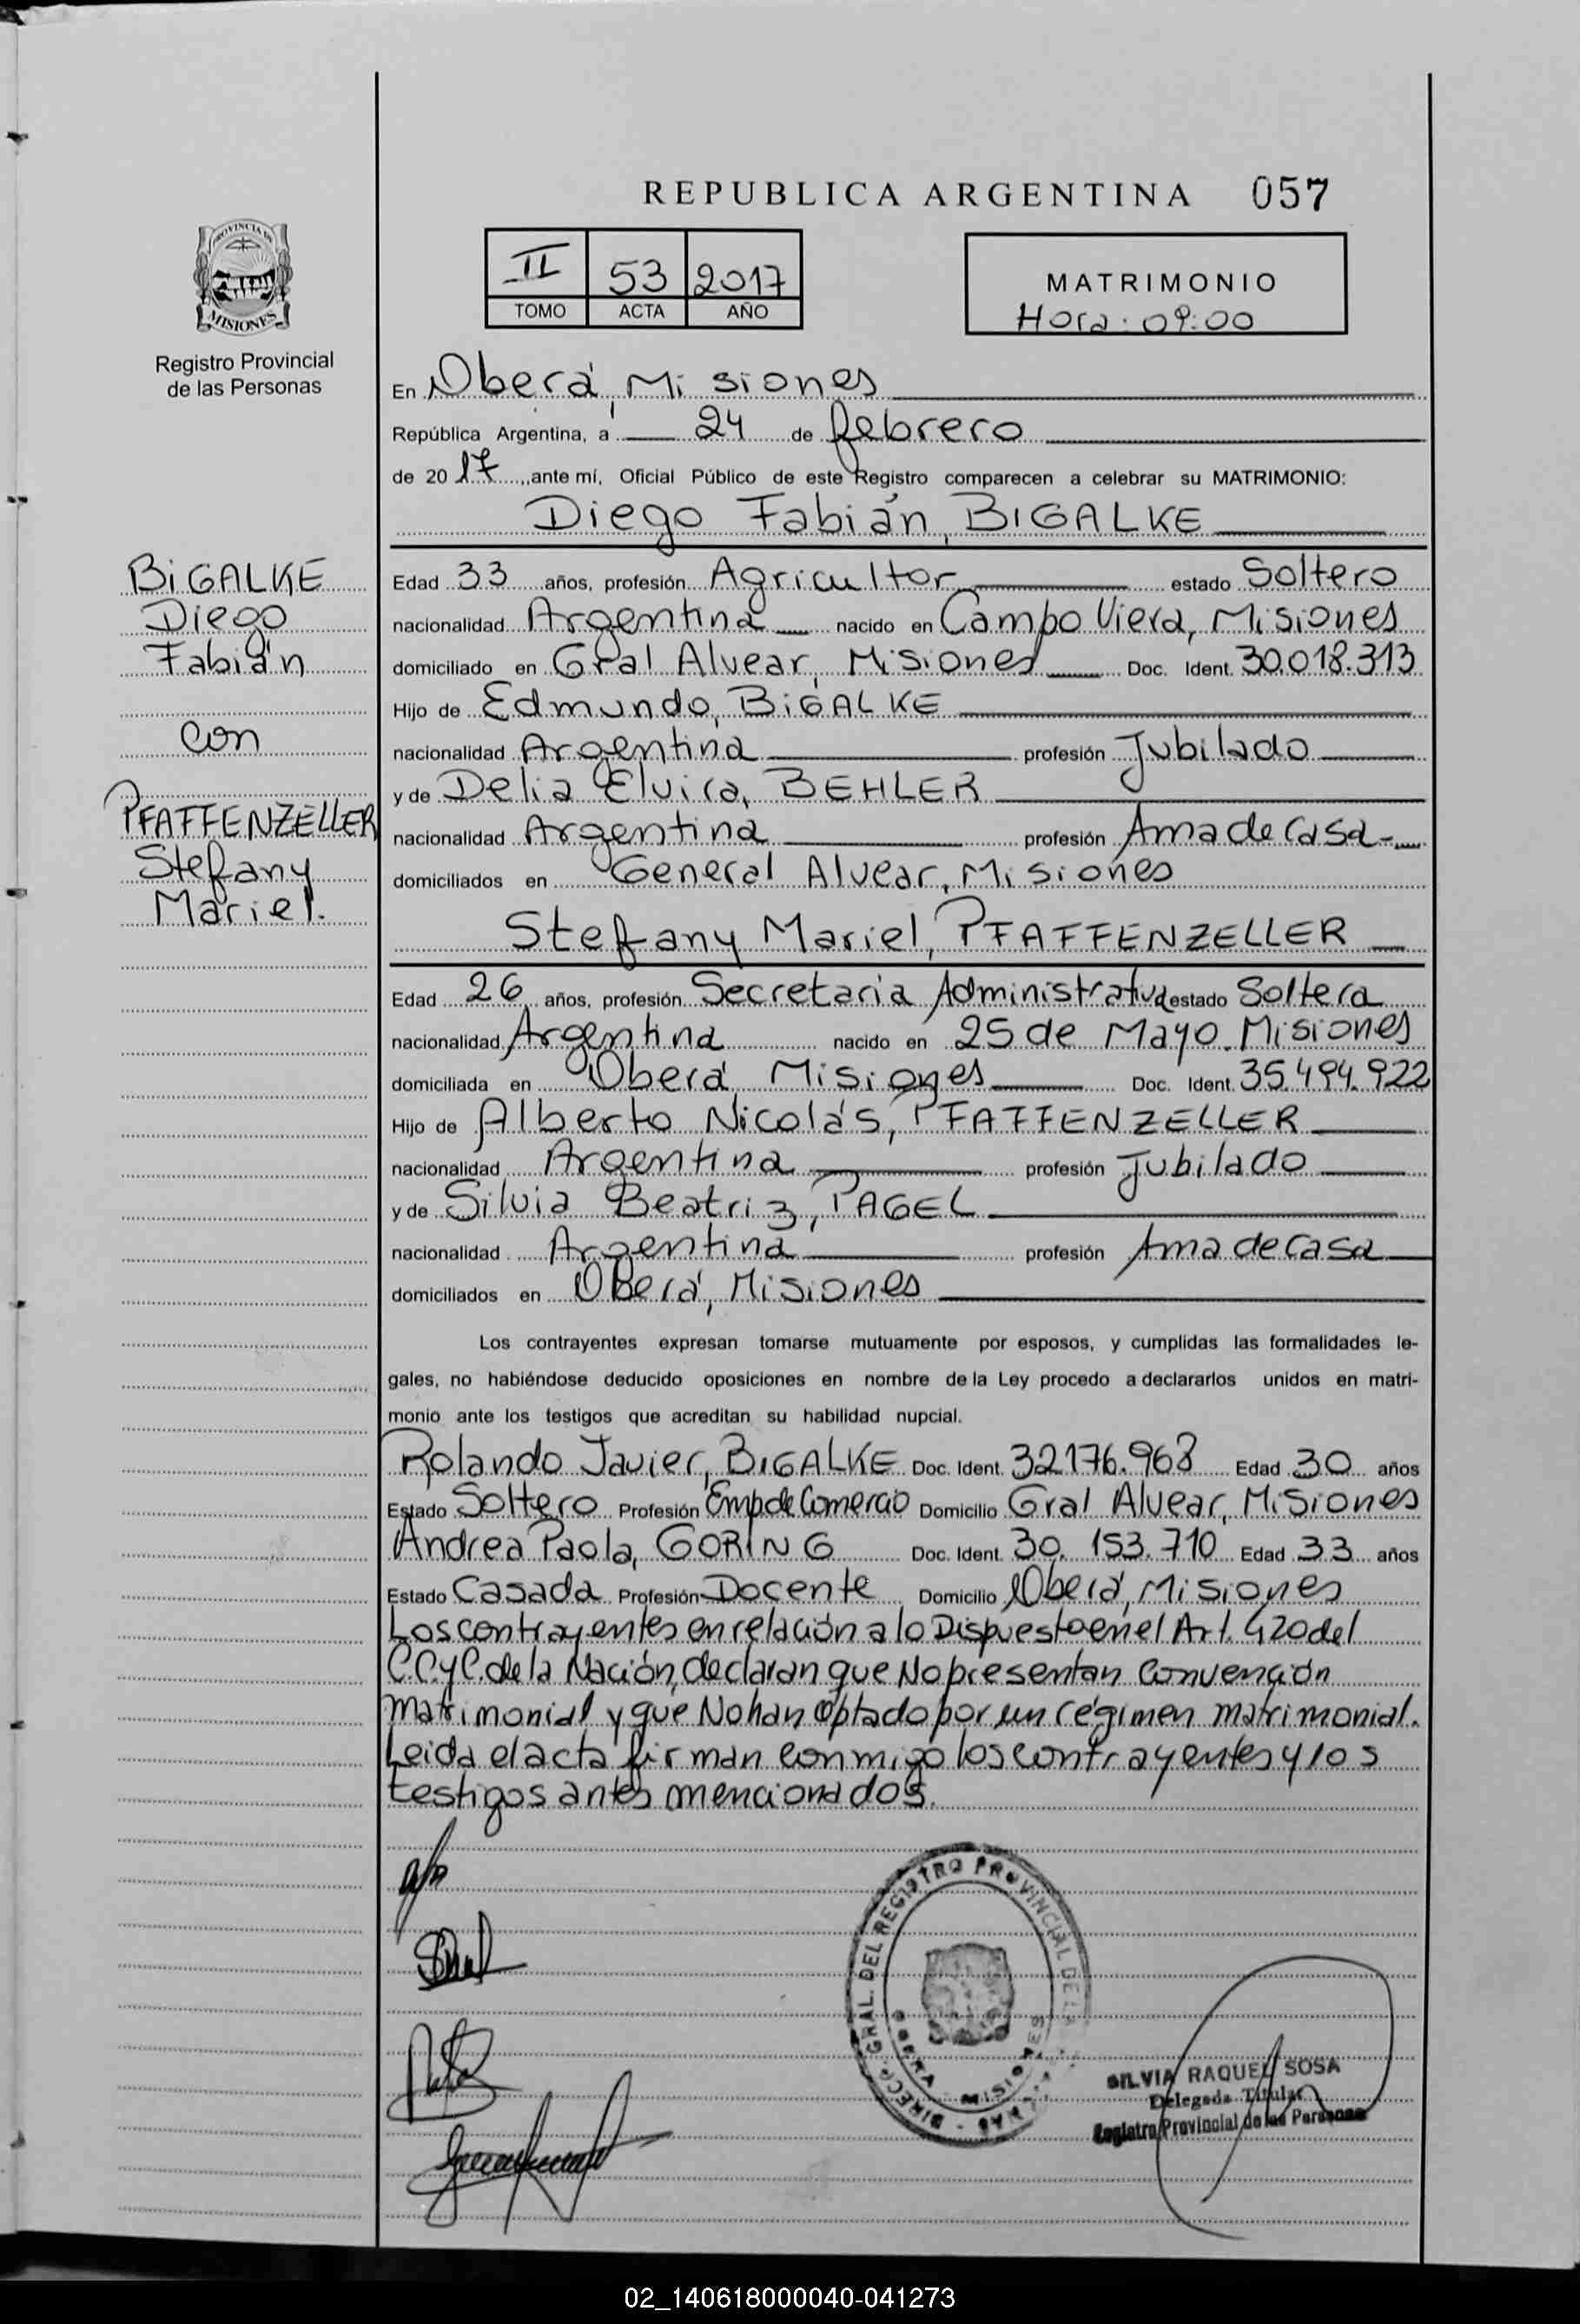 REPUBLICA ARGENTINA 057
PROVINCIA DE
MISIONES
Registro Provincial
de las Personas
II 53 2017
TOMO ACTA AÑO
MATRIMONIO
Hora: 09:00
En Oberá, Misiones
República Argentina, a 24 de febrero
de 2017, ante mí, Oficial Público de este Registro comparecen a celebrar su MATRIMONIO:
Diego Fabián, BIGALKE
BIGALKE
Diego
Fabián
con
PFAFFENZELLER
Stefany
Mariel.
Edad 33 años, profesión Agricultor estado Soltero
nacionalidad Argentina nacido en Campo Viera, Misiones
domiciliado en Gral Alvear, Misiones Doc. Ident. 30.018.313
Hijo de Edmundo, BIGALKE
nacionalidad Argentina profesión Jubilado
y de Delia Elvira, BEHLER
nacionalidad Argentina profesión Ama de Casa-
domiciliados en General Alvear, Misiones
Stefany Mariel, PFAFFENZELLER
Edad 26 años, profesión Secretaria Administrativa estado Soltera
nacionalidad Argentina nacido en 25 de Mayo. Misiones
domiciliada en Oberá Misiones Doc. Ident. 35.494.922
Hijo de Alberto Nicolás, PFAFFENZELLER
nacionalidad Argentina profesión Jubilado
y de Silvia Beatriz, PAGEL
nacionalidad Argentina profesión Ama de Casa
domiciliados en Oberá, Misiones
Los contrayentes expresan tomarse mutuamente por esposos, y cumplidas las formalidades le-
gales, no habiéndose deducido oposiciones en nombre de la Ley procedo a declararlos unidos en matri-
monio ante los testigos que acreditan su habilidad nupcial.
Rolando Javier, BIGALKE Doc. Ident. 32176.968 Edad 30 años
Estado Soltero Profesión Emp de Comercio Domicilio Gral Alvear, Misiones
Andrea Paola, GORING Doc. Ident. 30.153.710 Edad 33 años
Estado Casada Profesión Docente Domicilio Oberá, Misiones
Los contrayentes en relación a lo Dispuesto en el Art. 420 del
C.C.y C. de la Nación, declaran que No presentan Convención
matrimonial y que No han optado por un régimen matrimonial.
Leida el acta firman conmigo los contrayentes y los
testigos antes mencionados.
DIRECC. GRAL. DEL REGISTRO PROVINCIAL DE L
OBERA - MISIONES
SILVIA RAQUEL SOSA
Delegada Titular
Registro Provincial de las Personas
02_140618000040-041273